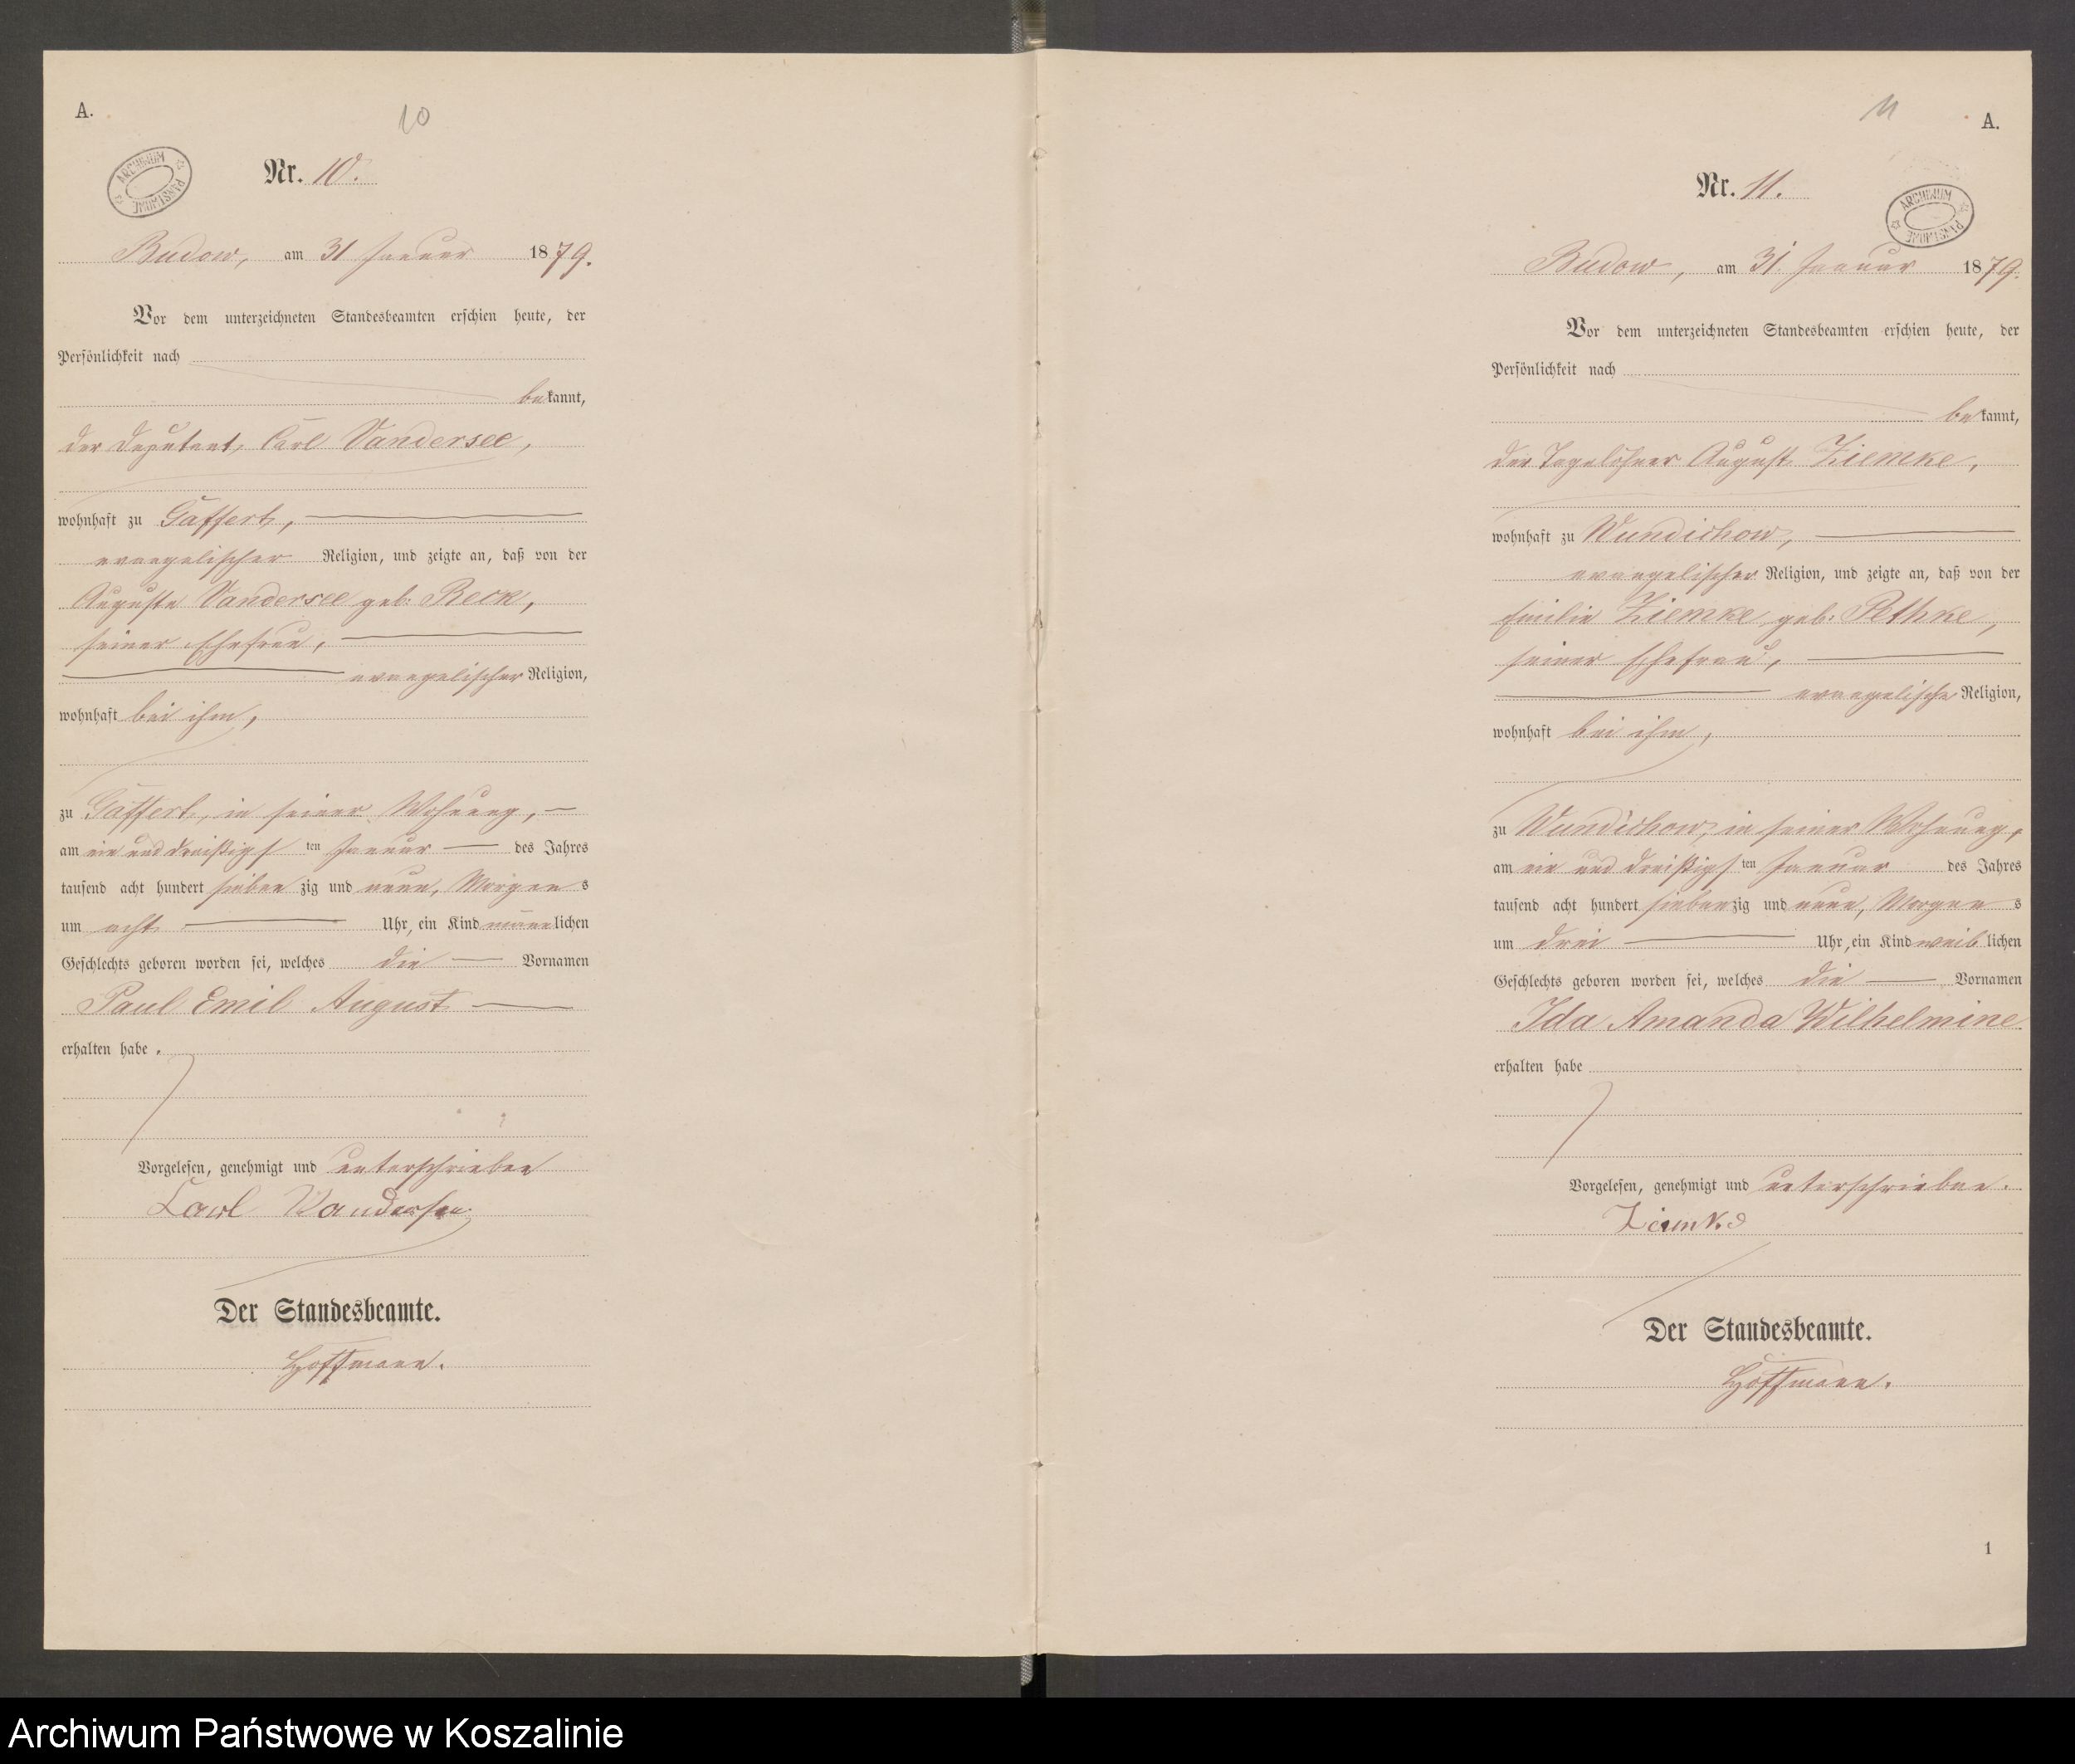 A.
10
ARCHIWUM PAŃSTWOWE
Nr. 10.
Budow, am 31 Januar 1879.
Vor dem unterzeichneten Standesbeamten erschien heute, der
Persönlichkeit nach
bekannt,
der Deputant, Carl Vandersee,
wohnhaft zu Gaffert,
evangelischer Religion, und zeigte an, daß von der
Auguste Vandersee geb: Reck,
seiner Ehefrau,
evangelischer Religion,
wohnhaft bei ihm,
zu Gaffert, in seiner Wohnung,
am ein und dreißigsten Januar des Jahres
tausend acht hundert siebenzig und neun, Morgens
um acht Uhr, ein Kind männlichen
Geschlechts geboren worden sei, welches die Vornamen
Paul Emil August
erhalten habe.
Vorgelesen, genehmigt und unterschrieben
Carl Vandersee
Der Standesbeamte.
Hoffmann.
11
A.
Nr. 11.
ARCHIWUM PAŃSTWOWE
Budow, am 31. Januar 1879.
Vor dem unterzeichneten Standesbeamten erschien heute, der
Persönlichkeit nach
bekannt,
der Tagelöhner August Ziemke,
wohnhaft zu Wundichow,
evangelischer Religion, und zeigte an, daß von der
Emilie Ziemke, geb: Pethke,
seiner Ehefrau,
evangelische Religion,
wohnhaft bei ihm,
zu Wundichow, in seiner Wohnung,
am ein und dreißigsten Januar des Jahres
tausend acht hundert siebenzig und neun, Morgens
um drei Uhr, ein Kind weiblichen
Geschlechts geboren worden sei, welches die Vornamen
Ida Amanda Wilhelmine
erhalten habe
Vorgelesen, genehmigt und unterschrieben.
Ziemke
Der Standesbeamte.
Hoffmann.
1
Archiwum Państwowe w Koszalinie